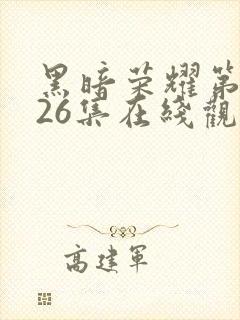 黑暗荣耀第
26集在线觀
高建军